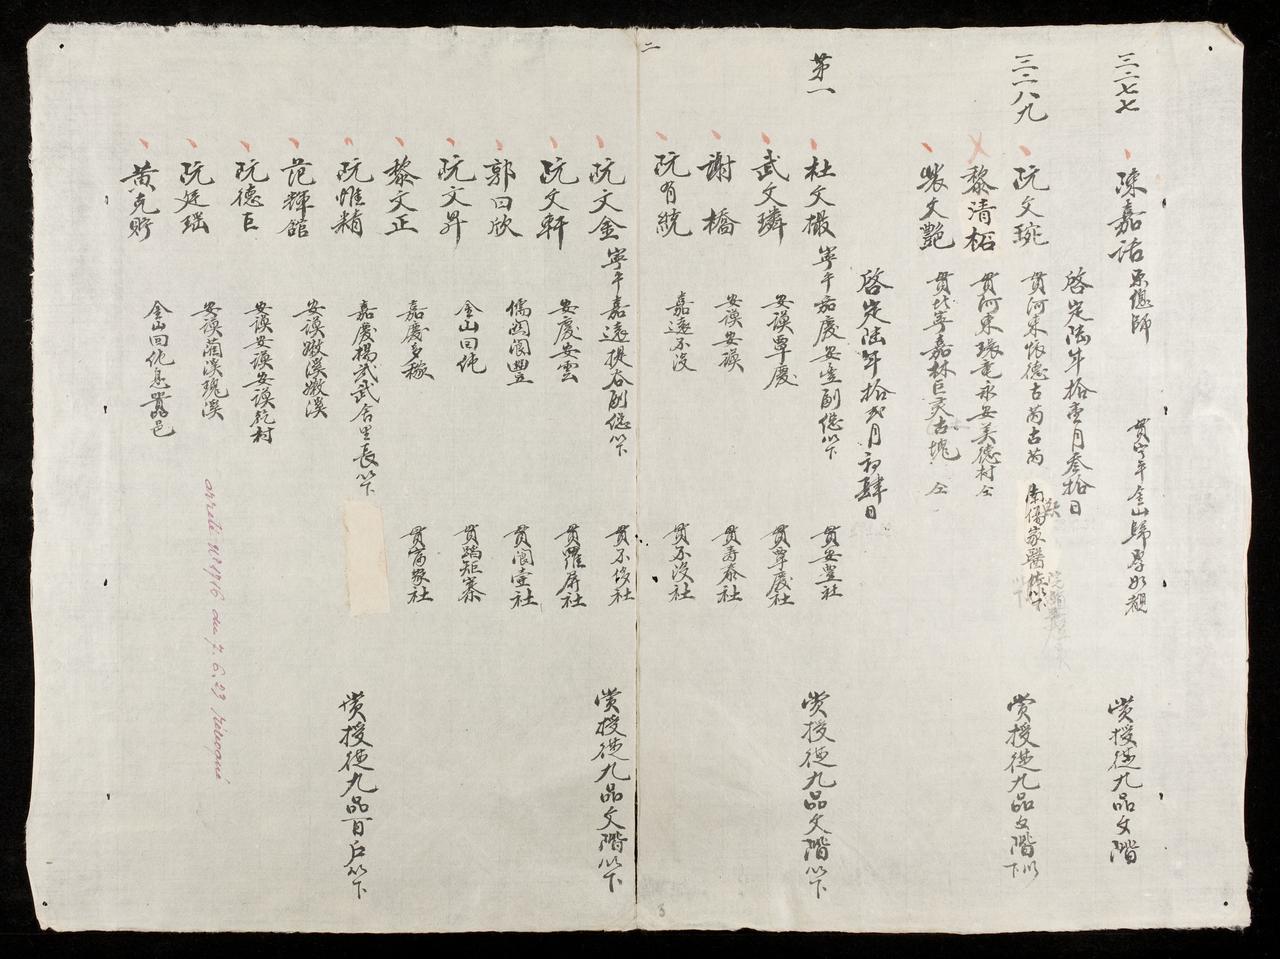 三二七七
陳嘉 原總師 貫宁平金山歸厚 賞授從九品文階
啓定陆年拾壹月叁拾日
三二八九
阮文琬 貫河東懷德古芮古芮 南 家醫 以下 賞授從九品文階以下
黎清柘 貫河東環竜永安美德村 仝
裴文艷 貫北寧嘉林巨灵古塊 仝
啓定陆年拾弍月初肆日
第一
杜文撮 寧平嘉慶安豊副總以下 貫安豊社 賞授從九品文階以下
武文璘 安謨覃慶 貫覃慶社
謝橋 安謨安謨 貫壽泰社
阮有統 嘉遠不没 貫不没社
二
阮文金 寧平嘉遠提 副總以下 貫不 社 賞授從九品文階以下
阮文軒 安慶安雲 貫羅屏社
郭曰欣 儒関閬豊 貫閬壹社
阮文昇 金山囬纯 貫 矩寨
黎文正 嘉慶多稼 貫富 社
阮惟精 嘉慶楊武武舍里長以下 賞授從九品百户以下
范輝館 安謨嫩溪嫩溪
阮德巨 安謨安謨安謨 村
阮廷瑙 安謨 溪瑰溪
黃克貯 金山囬纯息 邑
arrêté nº 1716 du 7.6.23 révoqué
3